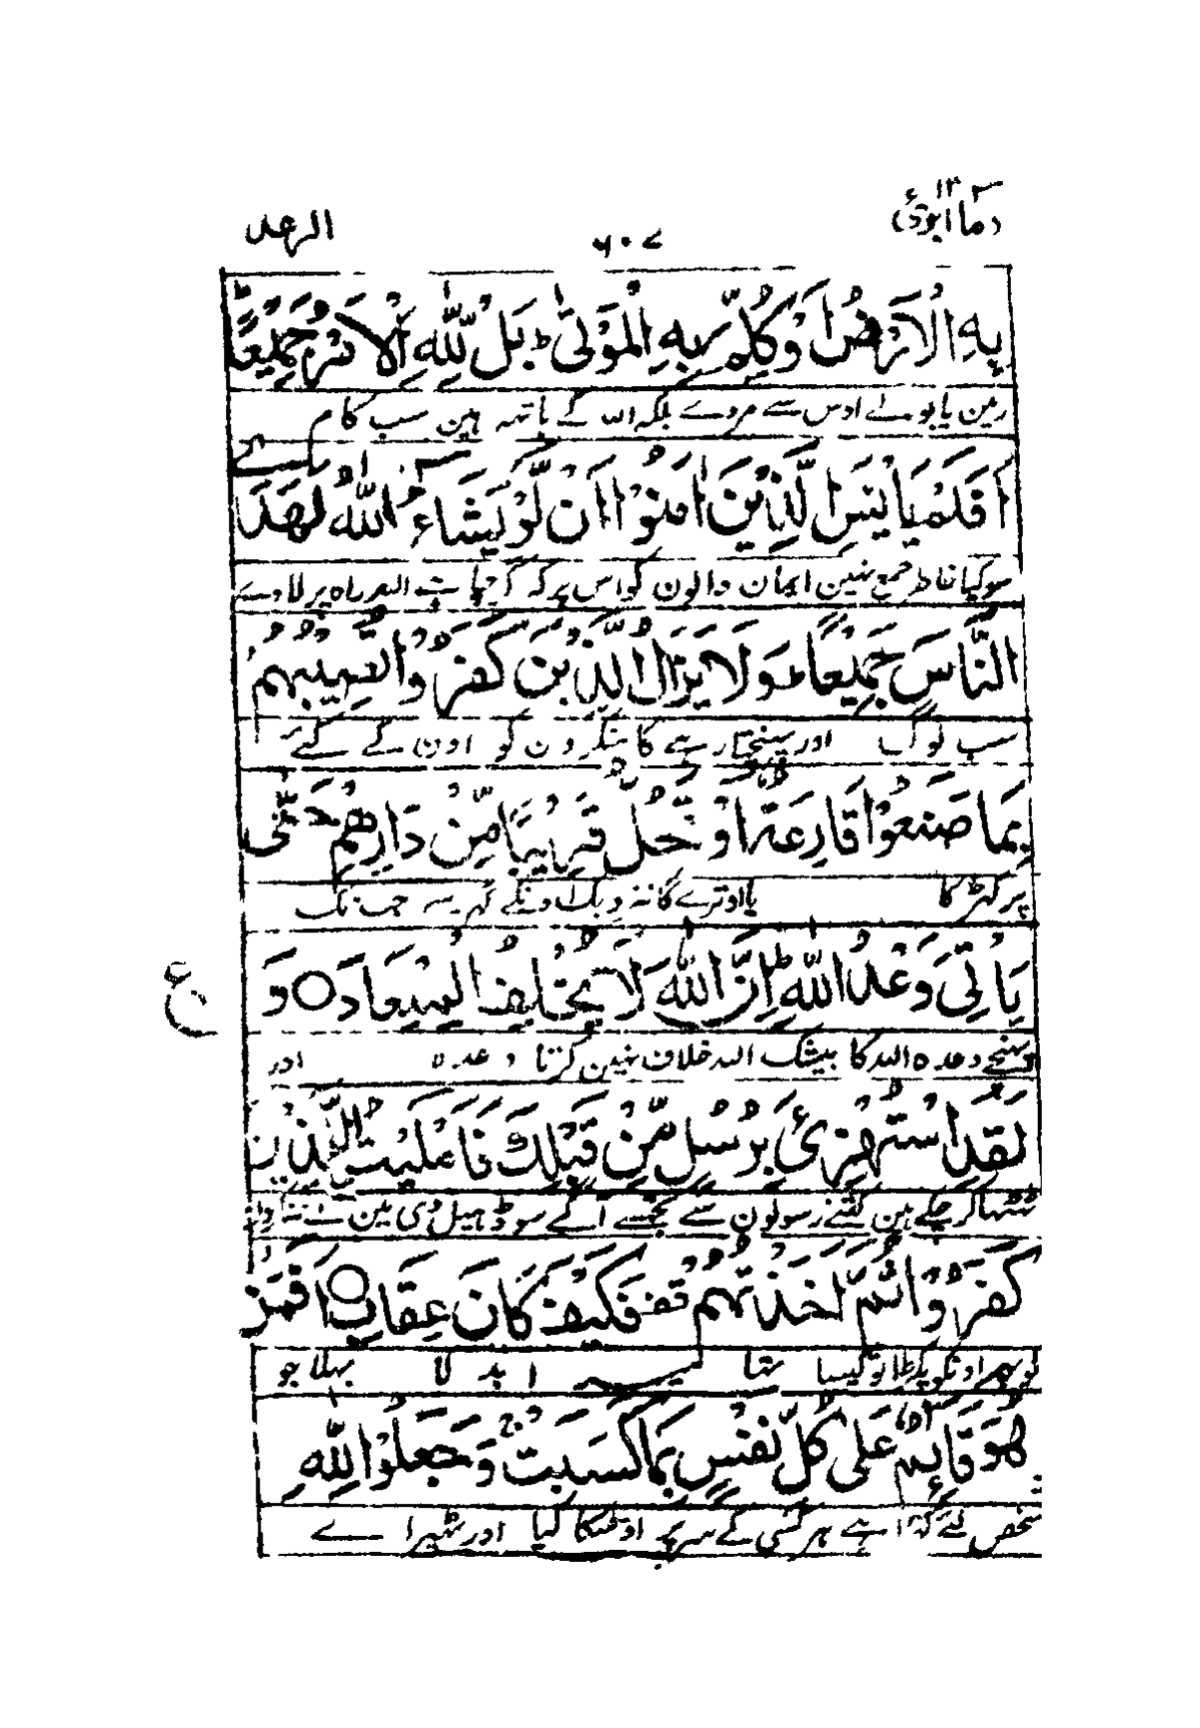 وما ابرئ ١٣
٦٠٧
الرعد
بِهِ الْاَرْضُ اَوْ كُلِّمَ بِهِ الْمَوْتٰى ط بَلْ لِّلّٰهِ الْاَمْرُ جَمِيْعًا ط
زمین یا بولے اوس سے مردے بلکہ اللہ کے ہاتھ ہین سب کام
اَفَلَمْ يَايْـَٔسِ الَّذِيْنَ اٰمَنُوْٓا اَنْ لَّوْ يَشَآءُ اللّٰهُ لَهَدَى
سو کیا خاطر جمع نہین ایمان والون کو اس پر کہ اگر چاہے اللہ راہ پر لاوے
النَّاسَ جَمِيْعًا ط وَلَا يَزَالُ الَّذِيْنَ كَفَرُوْا تُصِيْبُهُمْ
سب لوگ اور پہنچتا رہے گا منکرون کو اون کے کئے پر
بِمَا صَنَعُوْا قَارِعَةٌ اَوْ تَحُلُّ قَرِيْبًا مِّنْ دَارِهِمْ حَتّٰى
کھڑکا یا اوترے گا نزدیک اونکے گھر سے جب تک
يَاْتِيَ وَعْدُ اللّٰهِ ط اِنَّ اللّٰهَ لَا يُخْلِفُ الْمِيْعَادَ ○ وَ
ع
پہنچے وعدہ اللہ کا بیشک اللہ خلاف نہین کرتا وعدہ اور
لَقَدِ اسْتُهْزِئَ بِرُسُلٍ مِّنْ قَبْلِكَ فَاَمْلَيْتُ لِلَّذِيْنَ
ٹھٹھا کر چکے ہین کتنے رسولون سے تجھسے آگے سو ڈھیل دی مین نے
كَفَرُوْا ثُمَّ اَخَذْتُهُمْ قف فَكَيْفَ كَانَ عِقَابِ ○ اَفَمَنْ
پھر اونکو پکڑا تو کیسا تھا میرا بدلا بھلا جو
هُوَ قَآئِمٌ عَلٰى كُلِّ نَفْسٍ بِمَا كَسَبَتْ ج وَجَعَلُوْا لِلّٰهِ
شخص لئے کھڑا ہے ہر کسی کے سر پر اوسکا کیا اور ٹھیراے